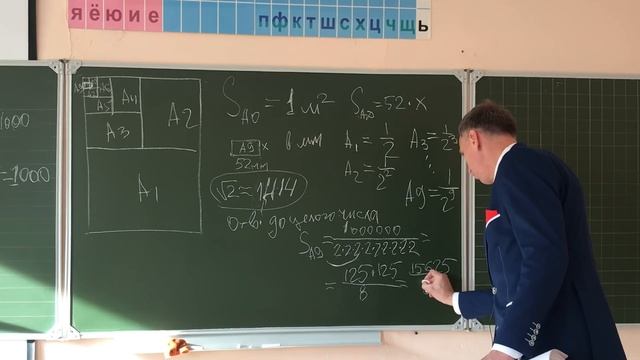 я ё ю и е п ф к т ш с х ц ч щ ь
1000
=1000
A4
A5
A3
A2
A1
S A0 = 1 м²
S A9 = 52 · x
A9 x
52мм
в мм
A1 = 1/2
A2 = 1/2²
A3 = 1/2³
A9 = 1/2⁹
√2 ≈ 1,414
отв. до целого числа
S A9 = 1000000 / 2·2·2·2·2·2·2·2·2 =
= 125·125 / 8 = 15625